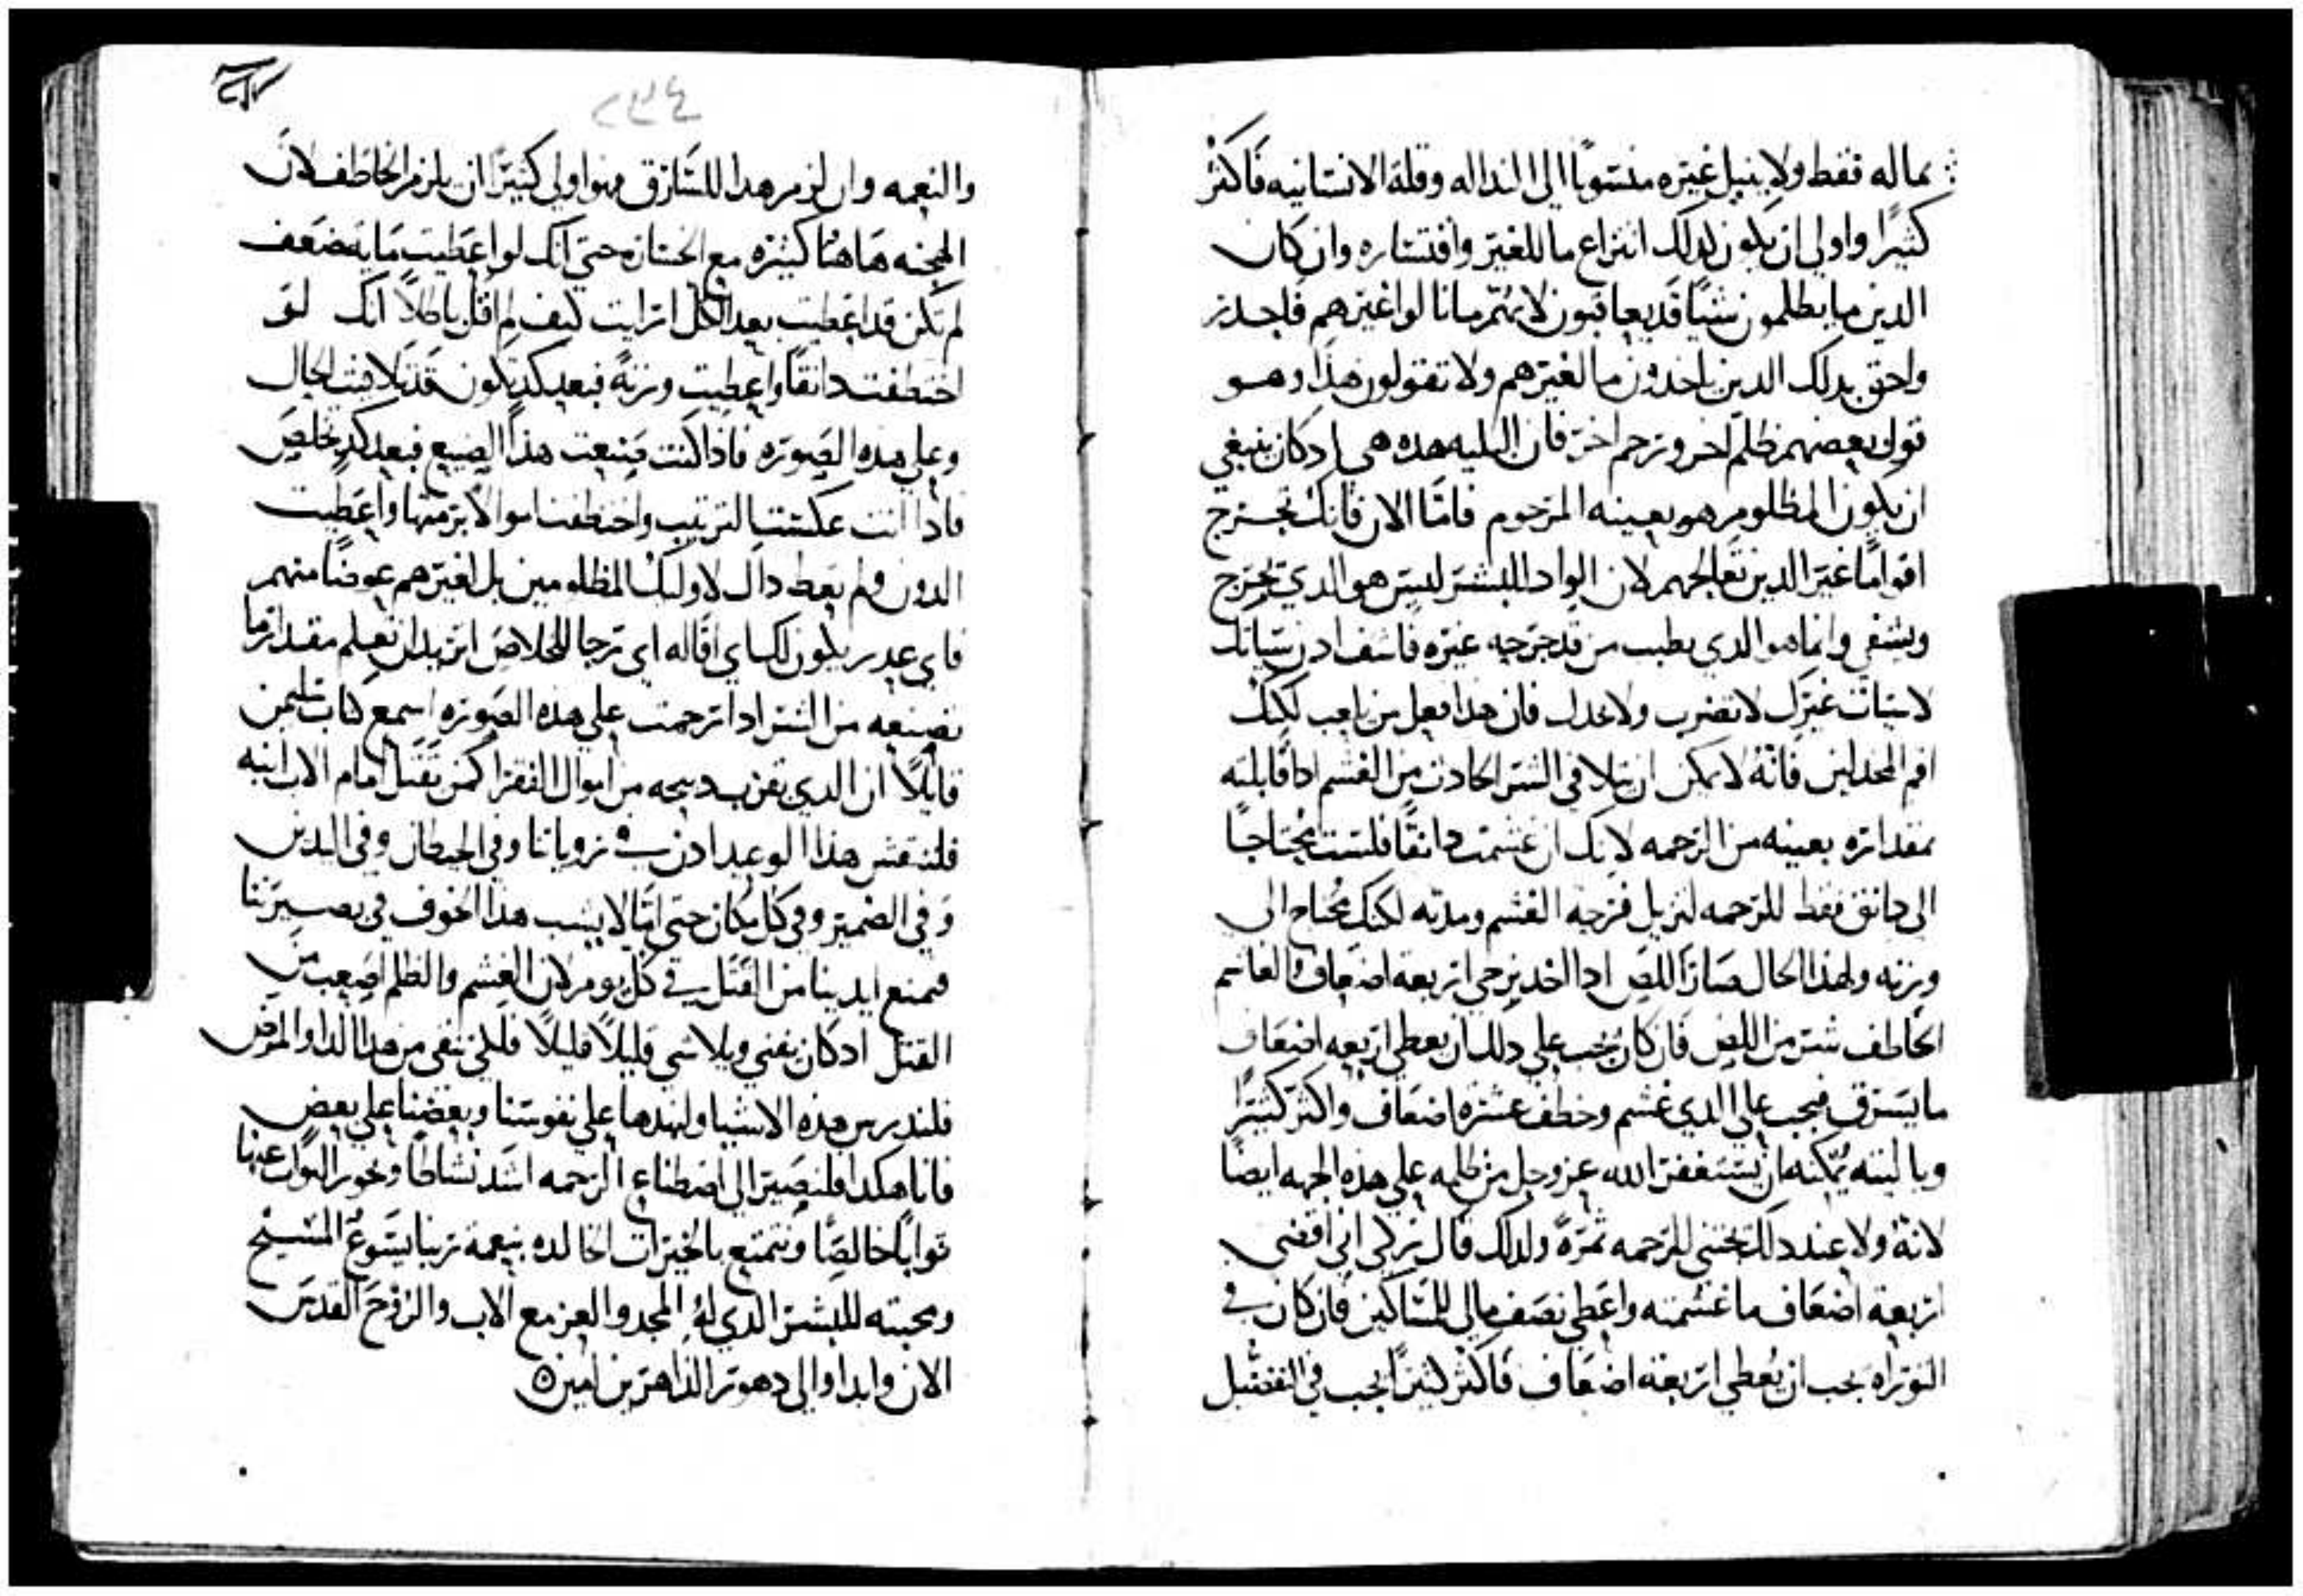 بماله فقط ولا ينيل غيره منسوبًا الى النداله وقلة الانسانيه فاكثر
كثيرًا واولى ان يكون كدلك انتزاع ما للغير وافتساره وان كان
الدين ما يظلمون شيًا قد يعاقبون لانهم ما نالوا غيرهم فاجدر
واحق بدلك الدين ياخدون ما لغيرهم ولا تقولون هذا وهو
قول بعضهم ظلم اخر ورحم اخر فان البليه هده هي ادكان ينبغي
ان يكون المظلوم هو بعينه المرحوم فاما الان فانك تجرح
اقوامًا غير الدين تعالجهم لان الواد للبشر ليس هو الدي يجرح
ويشفي وانما هو الدي يطبب من قد جرحه غيره فاشف ادن سيانك
لا سيات غيرك لا تضرب ولا تخدل فان هدا فعل من يلعب لكنك
اقم المخدلين فانه لا يمكن ان يتلافي الشر الحادث من الغشم ادا قابلته
بمقداره بعينه من الرحمه لانك ان غشمت دانقًا فلست محتاجًا
الى دانق فقط للرحمه لتزيل قرحة الغشم ومدته لكنك محتاج الى
وزنه ولهذا الحال صار اللص ادا اخد يزجي اربعة اضعاف والغاشم
الخاطف شر من اللص فان كان يجب على دلك ان يعطي اربعه اضعاف
ما يسرق فيجب على الدي غشم وخطف عشره اضعاف واكثر كثيرًا
ويا ليته يمكنه ان يستغفر الله عز وجل من ظلمه على هده الجهه ايضًا
لانه ولا عند دلك تجتني للرحمه ثمرةً ولدلك قال زكي اني اقضي
اربعة اضعاف ما غشمته واعطي نصف مالي للمساكين فان كان في
التوراه يجب ان يعطي اربعة اضعاف فاكثر كثيرًا يجب في
والنعمه وان لزم هدا للسارق فهو اولى كثيرًا ان يلزم الخاطف لان
الهجنه هاهنا كثيره مع الخساره حتى انك لو اعطيت ما يضعف
لم تكن قد اعطيت بعد الكل ارايت كيف لم اقل باطلاً انك لو
اختطفت دانقًا واعطيت وزنةً فبعد كد تكون قد تلافيت الحال
وعلى هده الصوره فاذا كنت صنعت هذا الصنيع فبعد كدٍ تخلص
فاذا انت عكست الترتيب واختطفت اموالاً برمتها واعطيت
الدون ولم يعط داك لاولئك المظلومين بل لغيرهم عوضًا منهم
فاي عدر يكون لك اي اقاله اي رجا للخلاص اتريد ان تعلم مقدار ما
تصنعه من الشر ادا ترحمت على هده الصوره اسمع كتاب
قايلاً ان الدي يقرب دبيحه من اموال الفقرا كمن يقتل امام الاب ابنه
فلننقش هذا الوعيد ادن في زوياتنا وفي الحيطان وفي اليدين
وفي الضمير وفي كل مكان حتى اما لا يشب هذا الخوف في بصيرتنا
فيمنع ايدينا من القتل في كل يوم لان الغشم والظلم اصعب من
القتل ادكان يفني ويلاشي قليلاً قليلاً فلكي ننقى من هدا الدا والمرض
فلندرس هده الاشيا ولنهدها على نفوسنا وبعضنا على بعض
فانا هكدا فلنصير الى اصطناع الرحمه اشد نشاطًا ونحوز الثواب عنها
ثوابًا خالصًا ونتمتع بالخيرات الخالده بنعمة ربنا يسوع المسيح
ومحبته للبشر الدي له المجد والعز مع الاب والروح القدس
الان وابدا والى دهور الداهرين امين ٥